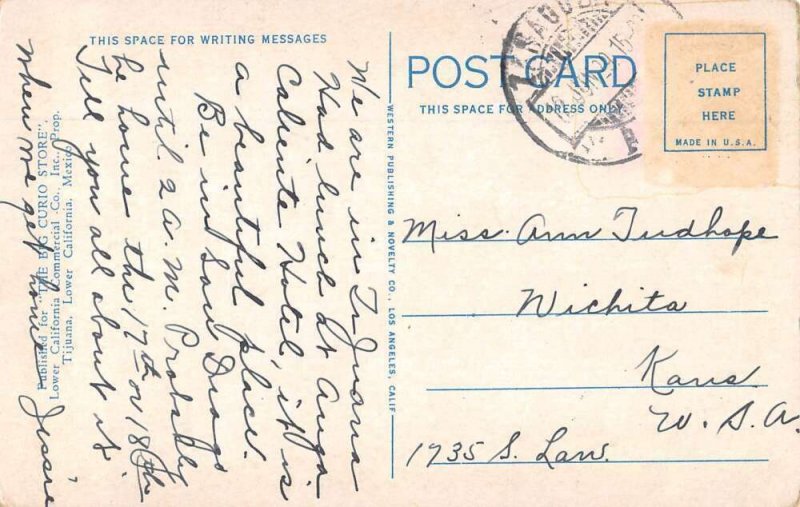 THIS SPACE FOR WRITING MESSAGES
We are in Ti Juana
Had lunch at Auga
Caliente Hotel, it is
a beautiful place.
Be in San Diago
until 2 a.m. Probably
be home the 17th or 18th.
Tell you all about it
when we get home
Jessie
Published for "THE BIG CURIO STORE".
Lower California Commercial Co., Inc., Prop.
Tijuana, Lower California, Mexico
WESTERN PUBLISHING & NOVELTY CO., LOS ANGELES, CALIF
POST CARD
THIS SPACE FOR ADDRESS ONLY
PLACE
STAMP
HERE
MADE IN U.S.A.
Miss. Ann Tudhope
Wichita
Kans.
U. S. A.
1735 S. Law.